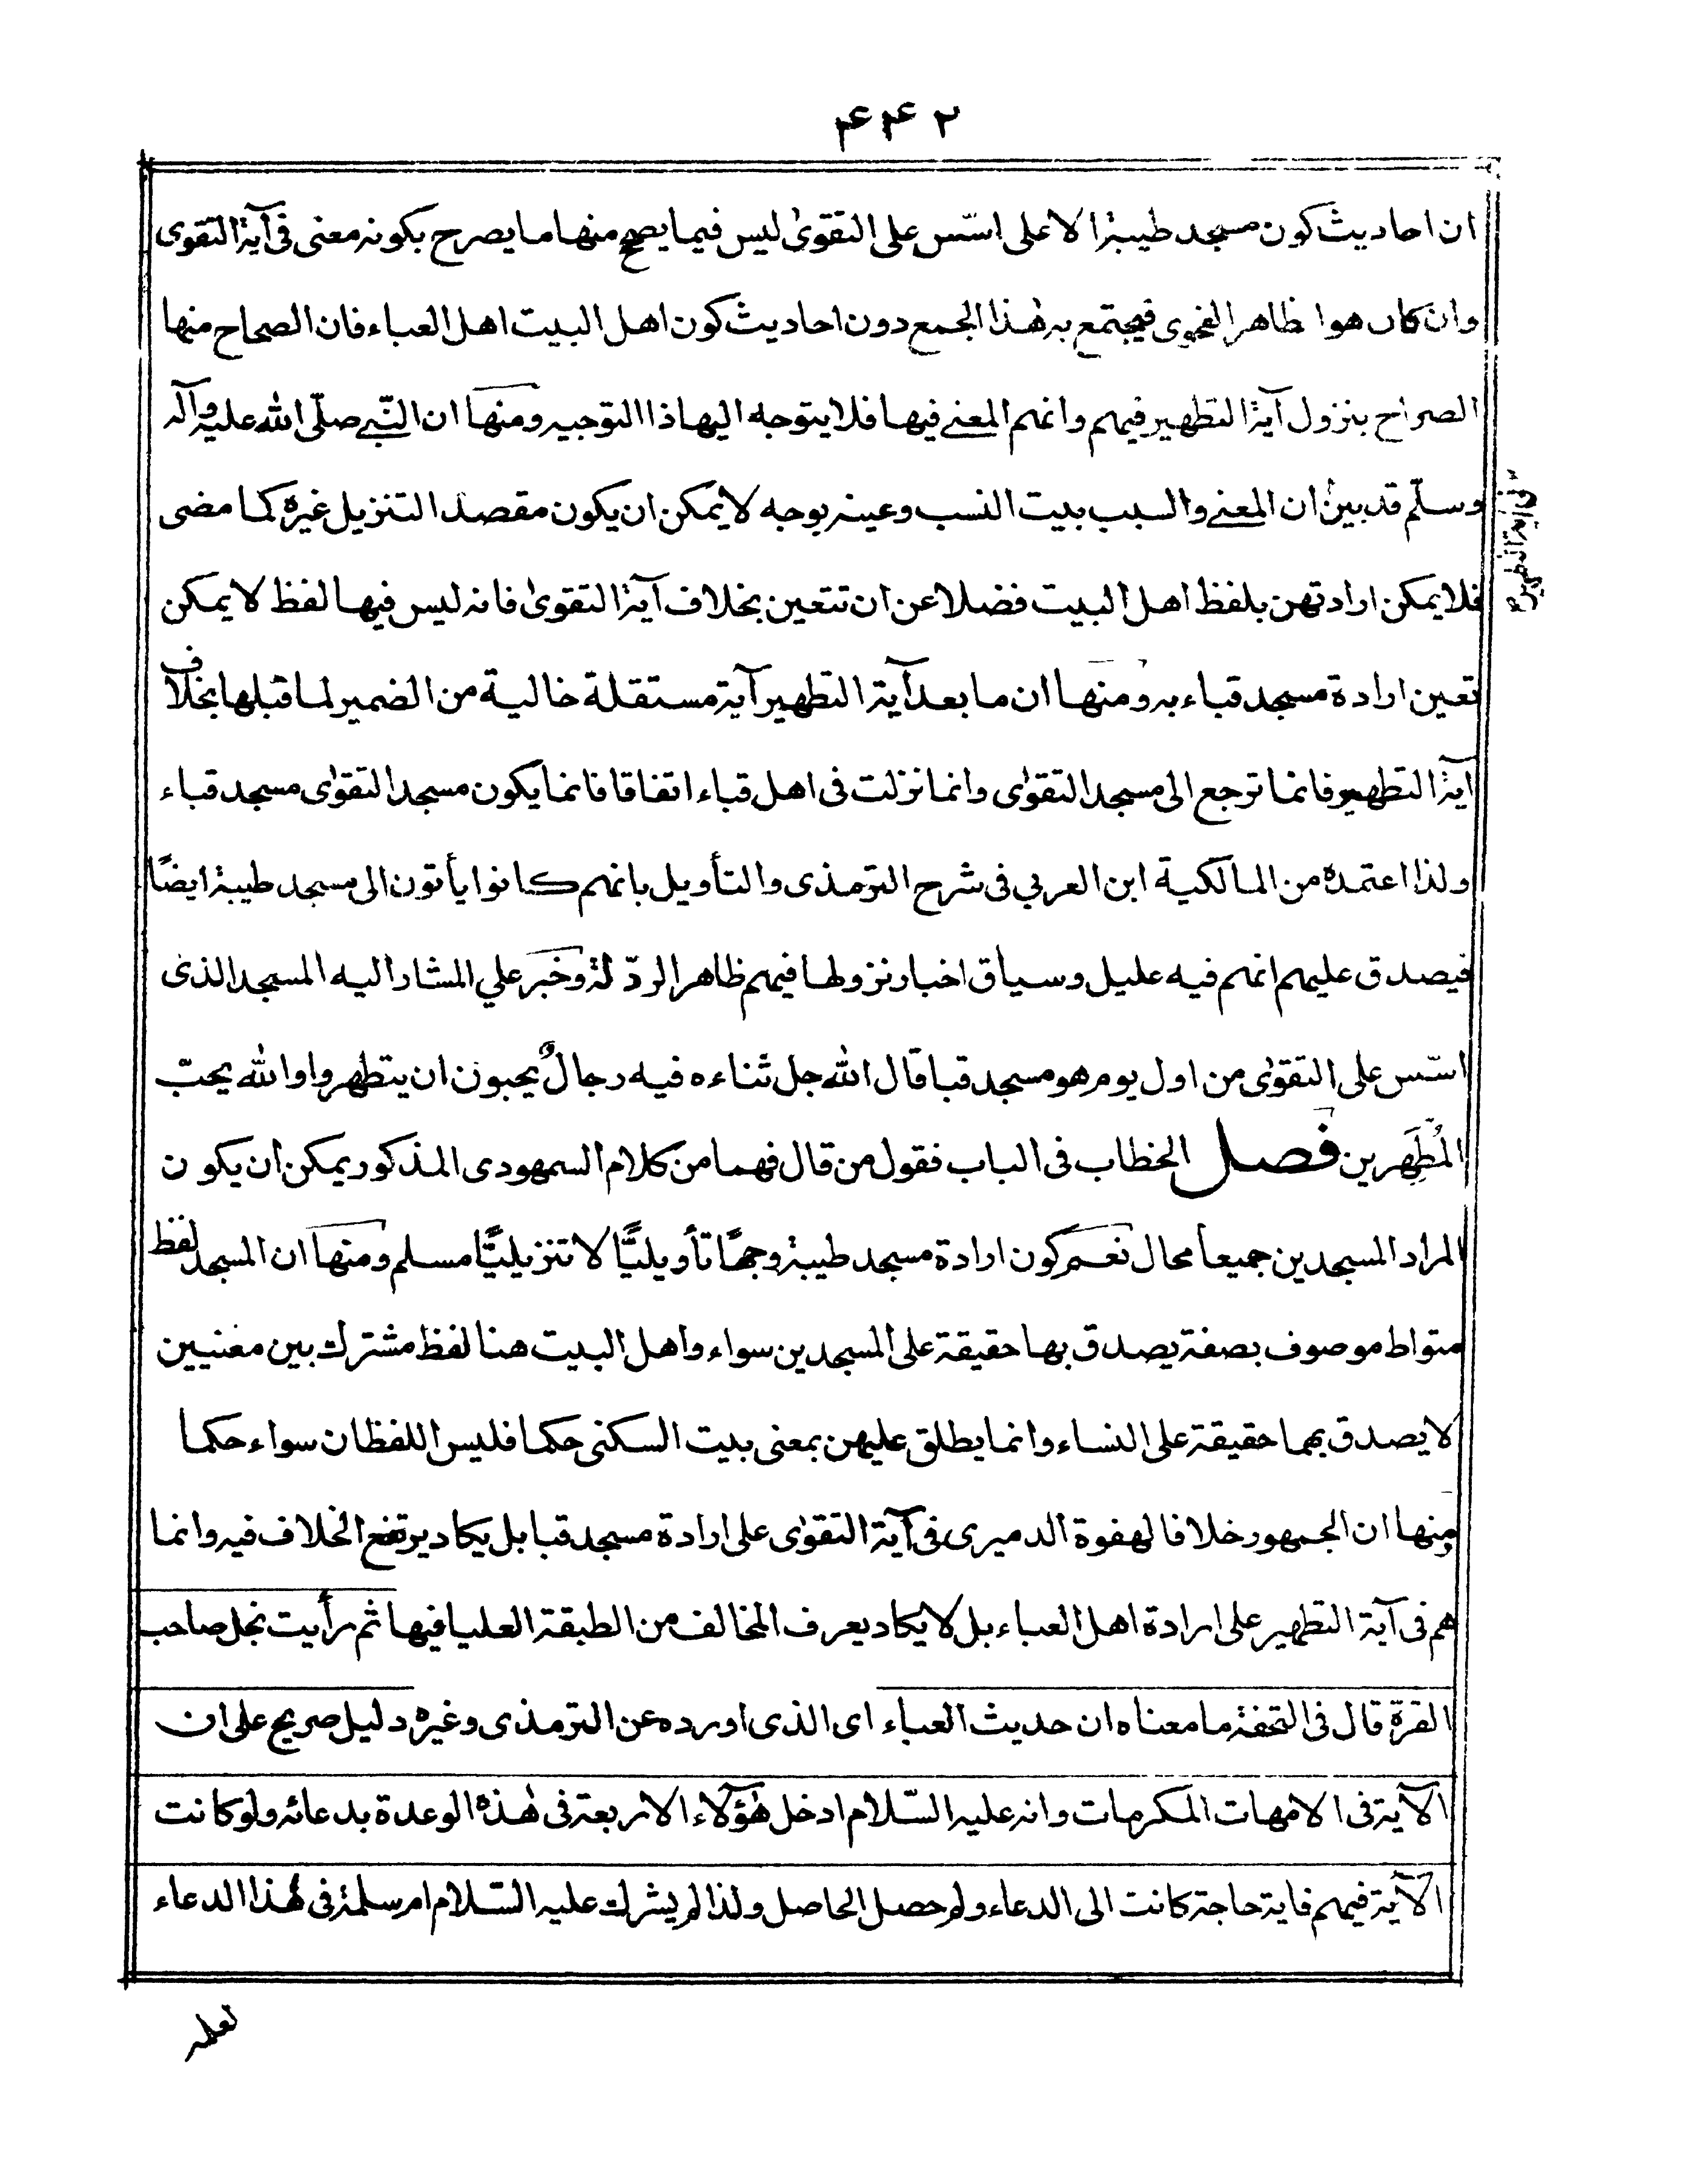 ۲۴۴
ان احاديث كون مسجد طيبة الاعلى اسّس على التقوىٰ ليس فيما يصح منها ما يصرح بكونه معنى فى آية التقوى
وان كان هو ا ظاهر الفحوى فيجتمع به هٰذا الجمع دون احاديث كون اهل البيت اهل العباء فان الصحاح منها
الصراح بنزول آية التطهير فيهم وانهم المعنے فيها فلا يتوجه اليها ذا التوجيه ومنها ان النّبے صلّى الله عليه وآله
وسلّم قد بين ان المعنے والسبب بيت النسب وعينه بوجه لا يمكن ان يكون مقصد التنزيل غيره كما مضى
فلا يمكن ارادتهن بلفظ اهل البيت فضلا عن ان تتعين بخلاف آية التقوىٰ فانه ليس فيها لفظ لا يمكن
تعين ارادة مسجد قباء به ومنها ان ما بعد آية التطهير آية مستقلة خالية من الضمير لما قبلها بخلاف
آية التطهير فانما ترجع الى مسجد التقوٰى وانما نزلت فى اهل قباء اتفاقا فانما يكون مسجد التقوٰى مسجد قباء
ولذا اعتمده من المالكية ابن العربي فى شرح الترمذى والتأويل بانهم كانوا يأتون الى مسجد طيبة ايضًا
فيصدق عليهم انهم فيه عليل وسياق اخبار نزولها فيهم ظاهر الردّ لة وخبر علي المشار اليه المسجد الذى
اسّس على التقوٰى من اول يوم هو مسجد قبا قال الله جل ثناءه فيه رجالٌ يحبون ان يتطهروا والله يحبّ
المُطَّهِرين فصل الخطاب فى الباب فقول من قال فهما من كلام السمهودى المذكور يمكن ان يكون
المراد المسجدين جميعا محال نعم كون ارادة مسجد طيبة وجهًا تأويليًّا لا تنزيليًّا مسلم ومنها ان المسجد لفظ
متواط موصوف بصفة يصدق بها حقيقة على المسجدين سواء واهل البيت هنا لفظ مشترك بين معنيين
لا يصدق بهما حقيقة على النساء وانما يطلق عليهن بمعنى بيت السكنى حكما فليس اللفظان سواء حكما
ومنها ان الجمهور خلافا لهفوة الدميرى فى آية التقوٰى على ارادة مسجد قبا بل يكاد يرتفع الخلاف فيه وانما
هم فى آية التطهير على ارادة اهل العباء بل لا يكاد يعرف المخالف من الطبقة العليا فيها ثم رأيت نجل صاحب
القرة قال فى التحفة ما معناه ان حديث العباء اى الذى اورده عن الترمذى وغيره دليل صريح على ان
الآية فى الامهات المكرمات وانه عليه السّلام ادخل هٰؤلاء الاربعة فى هٰذه الوعدة بدعائه ولو كانت
الآية فيهم فاية حاجة كانت الى الدعاء ولم حصل الحاصل ولذا لم يشرك عليه السّلام ام سلمة فى هٰذا الدعاء